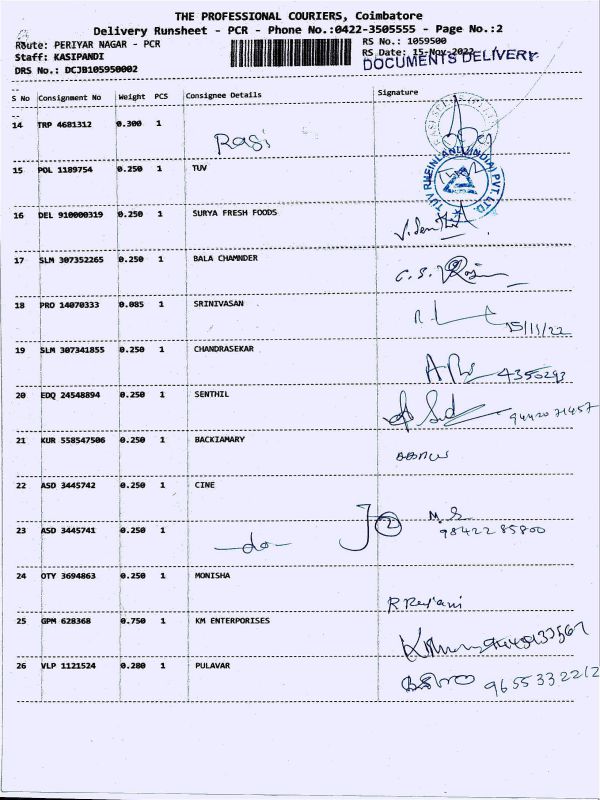 THE PROFESSIONAL COURIERS, Coimbatore
Delivery Runsheet - PCR - Phone No.:0422-3505555 - Page No.:2
Route: PERIYAR NAGAR - PCR RS No.: 1059500
Staff: KASIPANDI RS Date: 15-Nov-2022
DOCUMENTS DELIVERY
DRS No.: DCJB105950002
S No Consignment No Weight PCS Consignee Details Signature
14 TRP 4681312 0.300 1 Rasi
15 POL 1189754 0.250 1 TUV
TUV RHEINLAND (INDIA) PVT. LTD.
16 DEL 910000319 0.250 1 SURYA FRESH FOODS
17 SLM 307352265 0.250 1 BALA CHAMNDER
18 PRO 14070333 0.085 1 SRINIVASAN 15/11/22
19 SLM 307341855 0.250 1 CHANDRASEKAR 4350293
20 EDQ 24548894 0.250 1 SENTHIL 9442071457
21 KUR 558547506 0.250 1 BACKIAMARY
22 ASD 3445742 0.250 1 CINE
23 ASD 3445741 0.250 1 -do- 2 M.S 9842285800
24 OTY 3694863 0.250 1 MONISHA
25 GPM 628368 0.750 1 KM ENTERPORISES
26 VLP 1121524 0.280 1 PULAVAR 9655332212